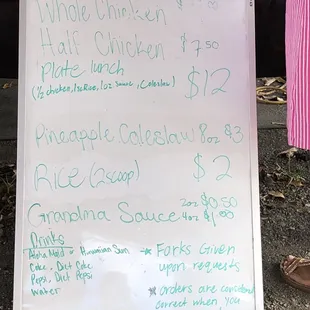 Whole Chicken
Half Chicken $7.50
Plate lunch
$12
Pineapple Coleslaw 8oz $3
Rice (2 scoop) $2
Grandma Sauce 2oz $0.50
4oz $1.00
Drinks
Aloha Maid Hawaiian Sun
Coke, Diet Coke
Pepsi, Diet Pepsi
Water
* Forks Given
upon requests
* orders are considered
correct when you